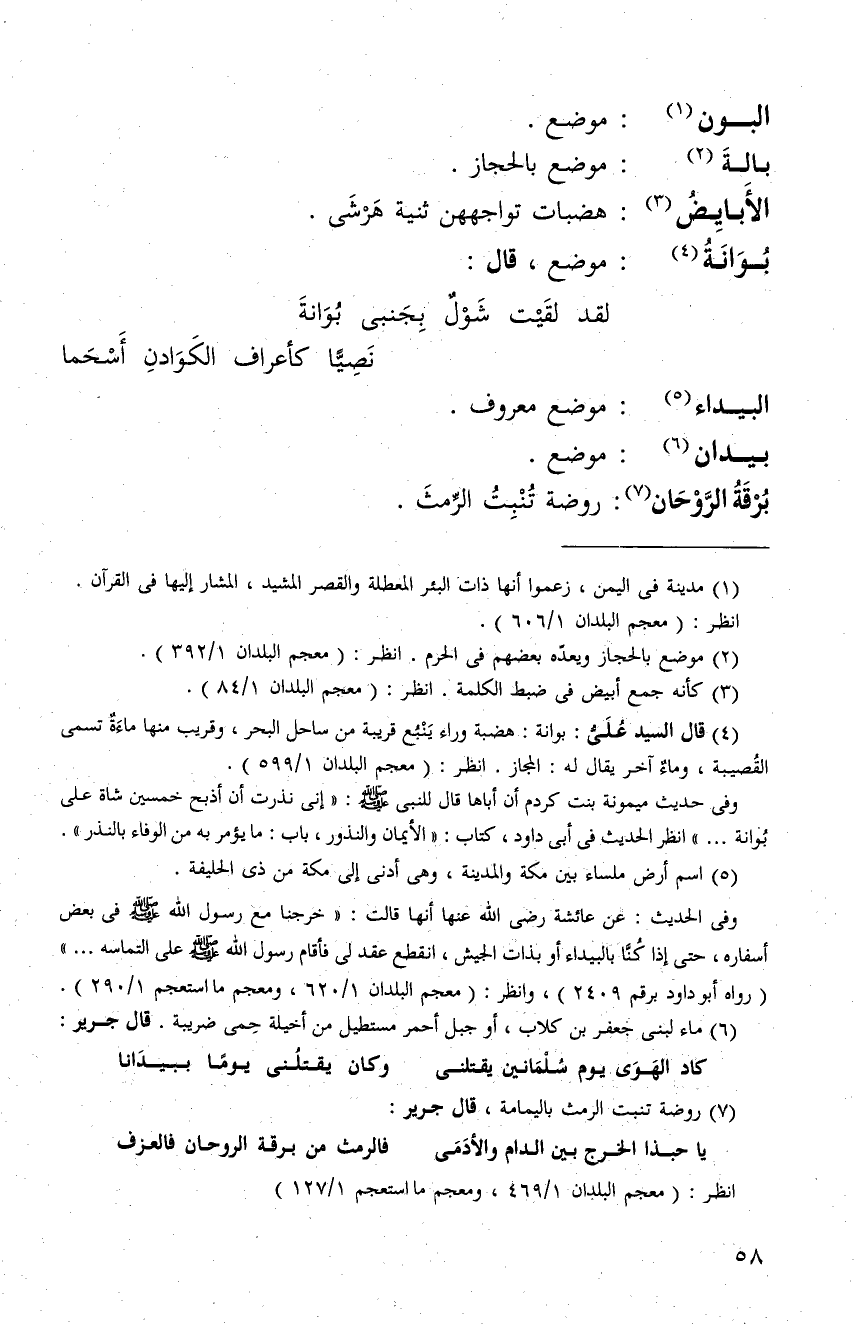 البـــون(١) : موضع .
بـالـةَ (٢) : موضع بالحجاز .
الأَبـايِـضُ(٣) : هضبات تواجههن ثنية هَرْشَى .
بُـوَانَـةُ(٤) : موضع ، قال :
لقد لقَيْت شَوْلٌ بِجَنبى بُوَانةَ
نَصِيًّا كأعراف الكَوَادنِ أَسْحَما
البيـداء(٥) : موضع معروف .
بـيـدان(٦) : موضع .
بُرْقَةُ الرَّوْحَان(٧): روضة تُنْبِتُ الرِّمثَ .
(١) مدينة فى اليمن ، زعموا أنها ذات البئر المعطلة والقصر المشيد ، المشار إليها فى القرآن .
انظر : ( معجم البلدان ٦٠٦/١ ) .
(٢) موضع بالحجاز ويعدّه بعضهم فى الحرم . انظر : ( معجم البلدان ٣٩٢/١ ) .
(٣) كأنه جمع أبيض فى ضبط الكلمة . انظر : ( معجم البلدان ٨٤/١ ) .
(٤) قال السيد عُلَىُّ : بوانة : هضبة وراء يَنْبُع قريبة من ساحل البحر ، وقريب منها ماءَةٌ تسمى
القُصيبة ، وماءٌ آخر يقال له : المجاز . انظر : ( معجم البلدان ٥٩٩/١ ) .
وفى حديث ميمونة بنت كردم أن أباها قال للنبى ﷺ : « إنى نذرت أن أذبح خمسين شاة على
بُوانة ... » انظر الحديث فى أبى داود ، كتاب : « الأيمان والنذور ، باب : ما يؤمر به من الوفاء بالنذر » .
(٥) اسم أرض ملساء بين مكة والمدينة ، وهى أدنى إلى مكة من ذى الحليفة .
وفى الحديث : عن عائشة رضى الله عنها أنها قالت : « خرجنا مع رسول الله ﷺ فى بعض
أسفاره ، حتى إذا كُنَّا بالبيداء أو بذات الجيش ، انقطع عقد لى فأقام رسول الله ﷺ على التماسه ... »
( رواه أبو داود برقم ٢٤٠٩ ) ، وانظر : ( معجم البلدان ٦٢٠/١ ، ومعجم ما استعجم ٢٩٠/١ ) .
(٦) ماء لبنى جعفر بن كلاب ، أو جبل أحمر مستطيل من أخيلة حِمى ضريبة . قال جـريـر :
كاد الهَـوَى يـوم سُلْمَانـين يقـتلنـى وكـان يقـتـلُـنـى يـومًـا بـبـيـدَانـا
(٧) روضة تنبت الرمث باليمامة ، قال جرير :
يا حبـذا الخـرج بـين الـدام والأدَمَـى فالرمث من برقـة الروحـان فالعـزف
انظر : ( معجم البلدان ٤٦٩/١ ، ومعجم ما استعجم ١٢٧/١ )
٥٨